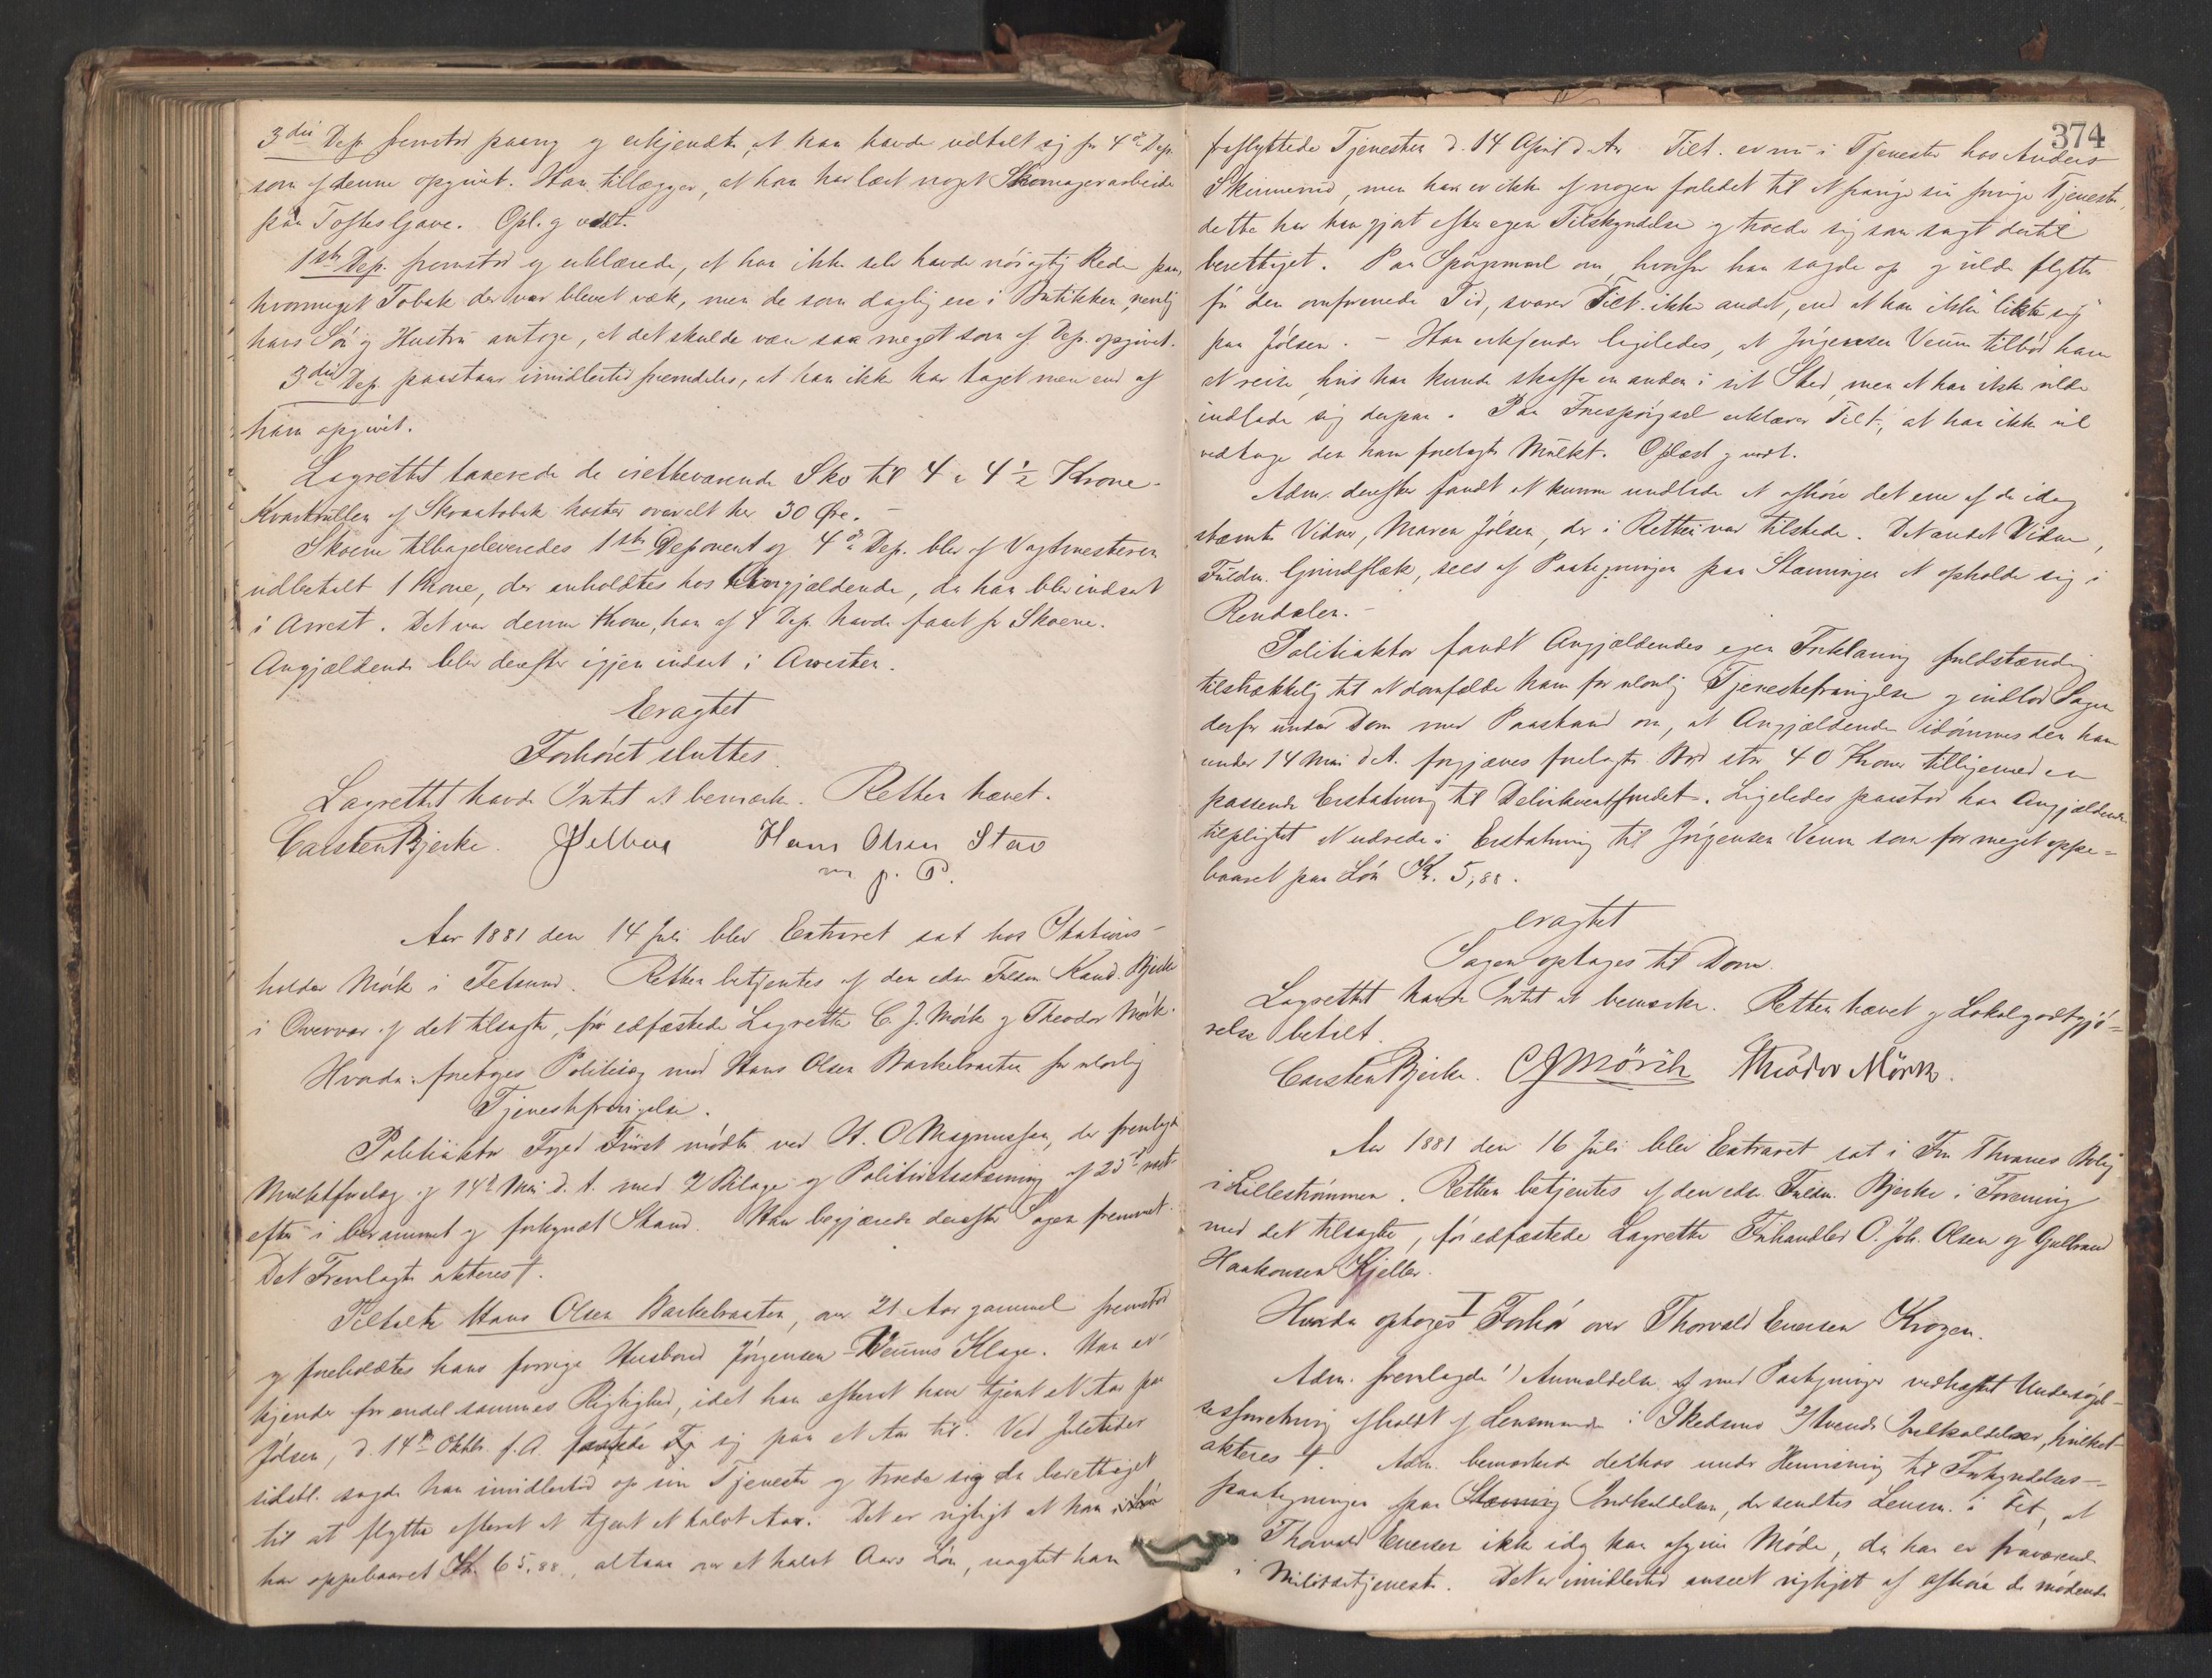 3die Dep. fremstod paany og erkjendte, at han havde udtalt sig for 4de Dep.
som af denne opgivet. Han tillægger, at han har lært noget Skomagerarbeide
paa Toftes Gave. Opl. og vedt.
1ste Dep. fremstod og erklærede, at han ikke selv havde nöiagtig Rede paa,
hvormeget Tobak der var blevet væk, men de som daglig ere i Butikken, nemlig
hans Sön og Hustru antoge, at det skulde være saa meget som af Dep. opgivet.
3die Dep. paastaar imidlertid fremdeles, at han ikke har taget mere end af
ham opgivet.
Lagrettet taxerede de iretteværende Sko til 4 a 4 1/2 Krone.
Kvartrullen af Skraatobak koster overalt her 30 Øre. -
Skoene tilbageleveredes 1ste Deponent og 4de Dep. blev af Vagtmesteren
udbetalt 1 Krone, der anholdtes hos Angjældende, da han blev indsat
i Arrest. Det var denne Krone, han af 4 Dep. havde faaet for Skoene.
Angjældende blev derefter igjen indsat i Arresten.
Eragtet
Forhöret sluttes.
Lagrettet havde Intet at bemærke. Retten hævet.
Carsten Bjerke. Hans Olsen Stav
m. p. P.
Aar 1881 den 14 Juli blev Extraret sat hos Stations-
holder Mörk i Fetsund. Retten betjentes af den edsv. Fuldm. Kand. Bjerke
i Overvær af det tilsagte, för edfæstede Lagrette C. J. Mörk og Theodor Mörk.
Hvorda: foretoges Politisag mod Hans Olsen Barkebraaten for ulovlig
Tjenestefravigelse.
Politiaktor Foged Fürst mödte ved H. O. Magnussen, der fremlagde
Mulktforelæg af 14de Mai d. A. med 2 Bilage og Politiretsstævning af 25de næst
efter i berammet og forkyndt Stand. Han begjærede derefter Sagen fremmet.
Det Fremlagte akteres †.
Tiltalte Hans Olsen Barkebraaten, over 21 Aar gammel fremstod
og foreholdtes hans forrige Husbond Jörgensen Veums Klage. Han er-
kjender for endel sammes Rigtighed, idet han efterat have tjent et Aar paa
Jölsen, d. 14de Oktbr. f. A. fæstede sig paa et Aar til. Ved Juletider
sidstl. sagde han imidlertid op sin Tjeneste og troede sig da berettiget
til at flytte efterat at tjent et halvt Aar. Det er rigtigt at han
har oppebaaret Kr. 65,88, altsaa over et halvt Aars Lön, uagtet han
374
fraflyttede Tjenesten d. 14 April d. Aar. Tilt. er nu i Tjeneste hos Anders
Skirmerud, men han er ikke af nogen forledet til at fravige sin forrige Tjeneste,
dette har han gjort efter egen Tilskyndelse og troede sig som sagt dertil
berettiget. Paa Spörgsmaal om, hvorfor han sagde op og vilde flytte
för den omforenede Tid, svarer Tilt. ikke andet, end at han ikke likte sig
paa Jölsen. - Han erkjender ligeledes, at Jörgensen Veum tilböd ham
at reise, hvis han kunde skaffe en anden i sit Sted, men at han ikke vilde
indlade sig derpaa. Paa Forespörgsel erklærer Tilt., at han ikke vil
vedtage den ham forelagte Mulkt. Oplæst og vedt.
Adm. derefter fandt at kunne undlade at afhöre det ene af de idag
stævnte Vidner, Maren Jölsen, der i Retten var tilstede. Det andet Vidne,
Fuldm. Grindflæk, sees af Paategningen paa Stævningen at opholde sig i
Rendalen. -
Politiaktor fandt Angjældendes egen Forklaring fuldstændig
tilstrækkelig til at domfælde ham for ulovlig Tjenestefravigelse og indlod Sagen
derfor under Dom med Paastand om, at Angjældende idömmes den ham
under 14 Mai d. A. forgjæves forelagte Bod stor 40 Kroner tilligemed en
passende Erstatning til Delinkventfondet. Ligeledes paastod han Angjældende
tilpligtet at udrede i Erstatning til Jörgensen Veum som for meget oppe=
baaret paa Lön Kr. 5,88.
eragtet
Sagen optages til Dom.
Lagrettet havde Intet at bemærke. Retten hævet og Lokalgodtgjö=
relse betalt.
Carsten Bjerke. C J Mörck Theodor Mörk.
Aar 1881 den 16 Juli blev Extraret sat i Fru Thranes Bolig
i Lillestrømmen. Retten betjentes af den edsv. Fuldm. Bjerke i Forening
med det tilsagte, för edfæstede Lagrette Handler O. Joh. Olsen og Gulbrand
Haakonsen Kjeller.
Hvorda optoges I Forhör over Thorvald Evensen Krogen.
Adm. fremlagde 1) Anmeldelse af med Paategninger vedhæftet Undersögel-
sesforretning afholdt af Lensmanden i Skedsmo 2) tvende Indkaldelser, hvilket
akteres †. Adm. bemærkede derhos under Henvisning til Forkyndelses-
paategningen paa Stævning Indkaldelsen, der sendtes Lensm. i Fet, at
Thorvald Evensen ikke idag kan afgive Möde, da han er fraværende
i Militærtjeneste. Det er imidlertid anseet rigtigst af afhöre de mödende